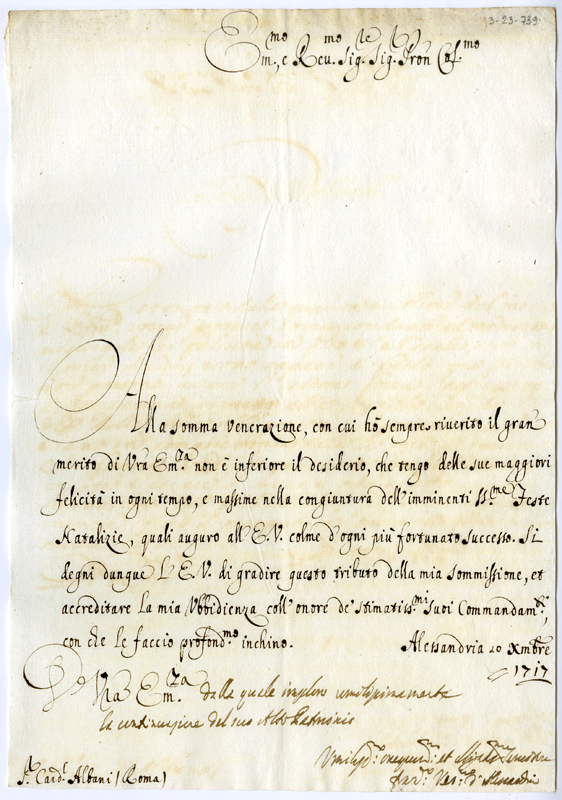 3-23-739
Em.mo, e Reu.mo Sig.re Sig.r Pron Col.mo
Alla somma venerazione, con cui hò sempre riuerito il gran
merito di Vrã Em.za non è inferiore il desiderio, che tengo delle sue maggiori
felicità in ogni tempo, e massime nella congiuntura dell'imminenti SS.me Feste
Natalizie, quali auguro all'E.V. colme d'ogni più fortunato successo. Si
degni dunque L'E.V. di gradire questo tributo della mia sommissione, et
accreditare la mia Vbbidienza coll'onore de' stimatiss.mi suoi Commandam.ti,
con che le faccio profond.mo inchino. Alessandria 20 Xmbre
1717
Di Vrã Em.za dalla quale imploro umilissimamente
la continuazione del suo Alto Patrocinio
S.r Card.l Albani (Roma)